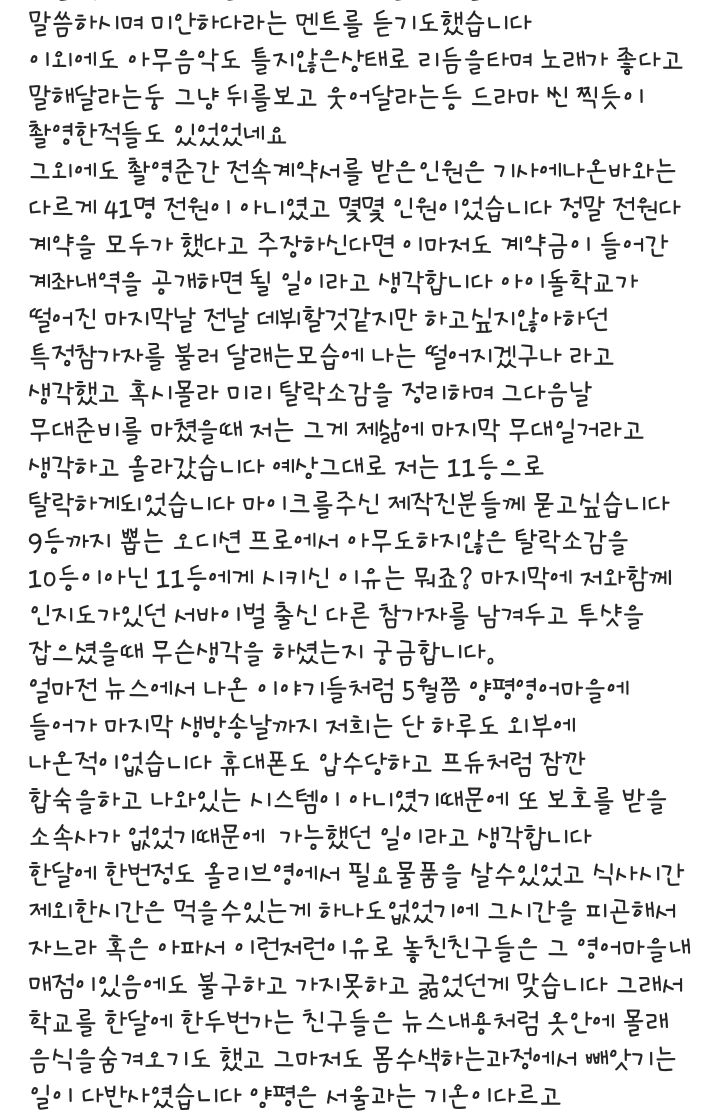 말씀하시며 미안하다라는 멘트를 듣기도했습니다
이외에도 아무음악도 틀지않은상태로 리듬을타며 노래가 좋다고
말해달라는둥 그냥 뒤를보고 웃어달라는등 드라마 씬 찍듯이
촬영한적들도 있었었네요
그외에도 촬영준간 전속계약서를 받은인원은 기사에나온바와는
다르게 41명 전원이 아니였고 몇몇 인원이었습니다 정말 전원다
계약을 모두가 했다고 주장하신다면 이마저도 계약금이 들어간
계좌내역을 공개하면 될 일이라고 생각합니다 아이돌학교가
떨어진 마지막날 전날 데뷔할것같지만 하고싶지않아하던
특정참가자를 불러 달래는모습에 나는 떨어지겠구나 라고
생각했고 혹시몰라 미리 탈락소감을 정리하며 그다음날
무대준비를 마쳤을때 저는 그게 제삶에 마지막 무대일거라고
생각하고 올라갔습니다 예상그대로 저는 11등으로
탈락하게되었습니다 마이크를주신 제작진분들께 묻고싶습니다
9등까지 뽑는 오디션 프로에서 아무도하지않은 탈락소감을
10등이아닌 11등에게 시키신 이유는 뭐죠? 마지막에 저와함께
인지도가있던 서바이벌 출신 다른 참가자를 남겨두고 투샷을
잡으셨을때 무슨생각을 하셨는지 궁금합니다。
얼마전 뉴스에서 나온 이야기들처럼 5월쯤 양평영어마을에
들어가 마지막 생방송날까지 저희는 단 하루도 외부에
나온적이없습니다 휴대폰도 압수당하고 프듀처럼 잠깐
합숙을하고 나와있는 시스템이 아니였기때문에 또 보호를 받을
소속사가 없었기때문에  가능했던 일이라고 생각합니다
한달에 한번정도 올리브영에서 필요물품을 살수있었고 식사시간
제외한시간은 먹을수있는게 하나도없었기에 그시간을 피곤해서
자느라 혹은 아파서 이런저런이유로 놓친친구들은 그 영어마을내
매점이있음에도 불구하고 가지못하고 굶었던게 맞습니다 그래서
학교를 한달에 한두번가는 친구들은 뉴스내용처럼 옷안에 몰래
음식을숨겨오기도 했고 그마저도 몸수색하는과정에서 빼앗기는
일이 다반사였습니다 양평은 서울과는 기온이다르고